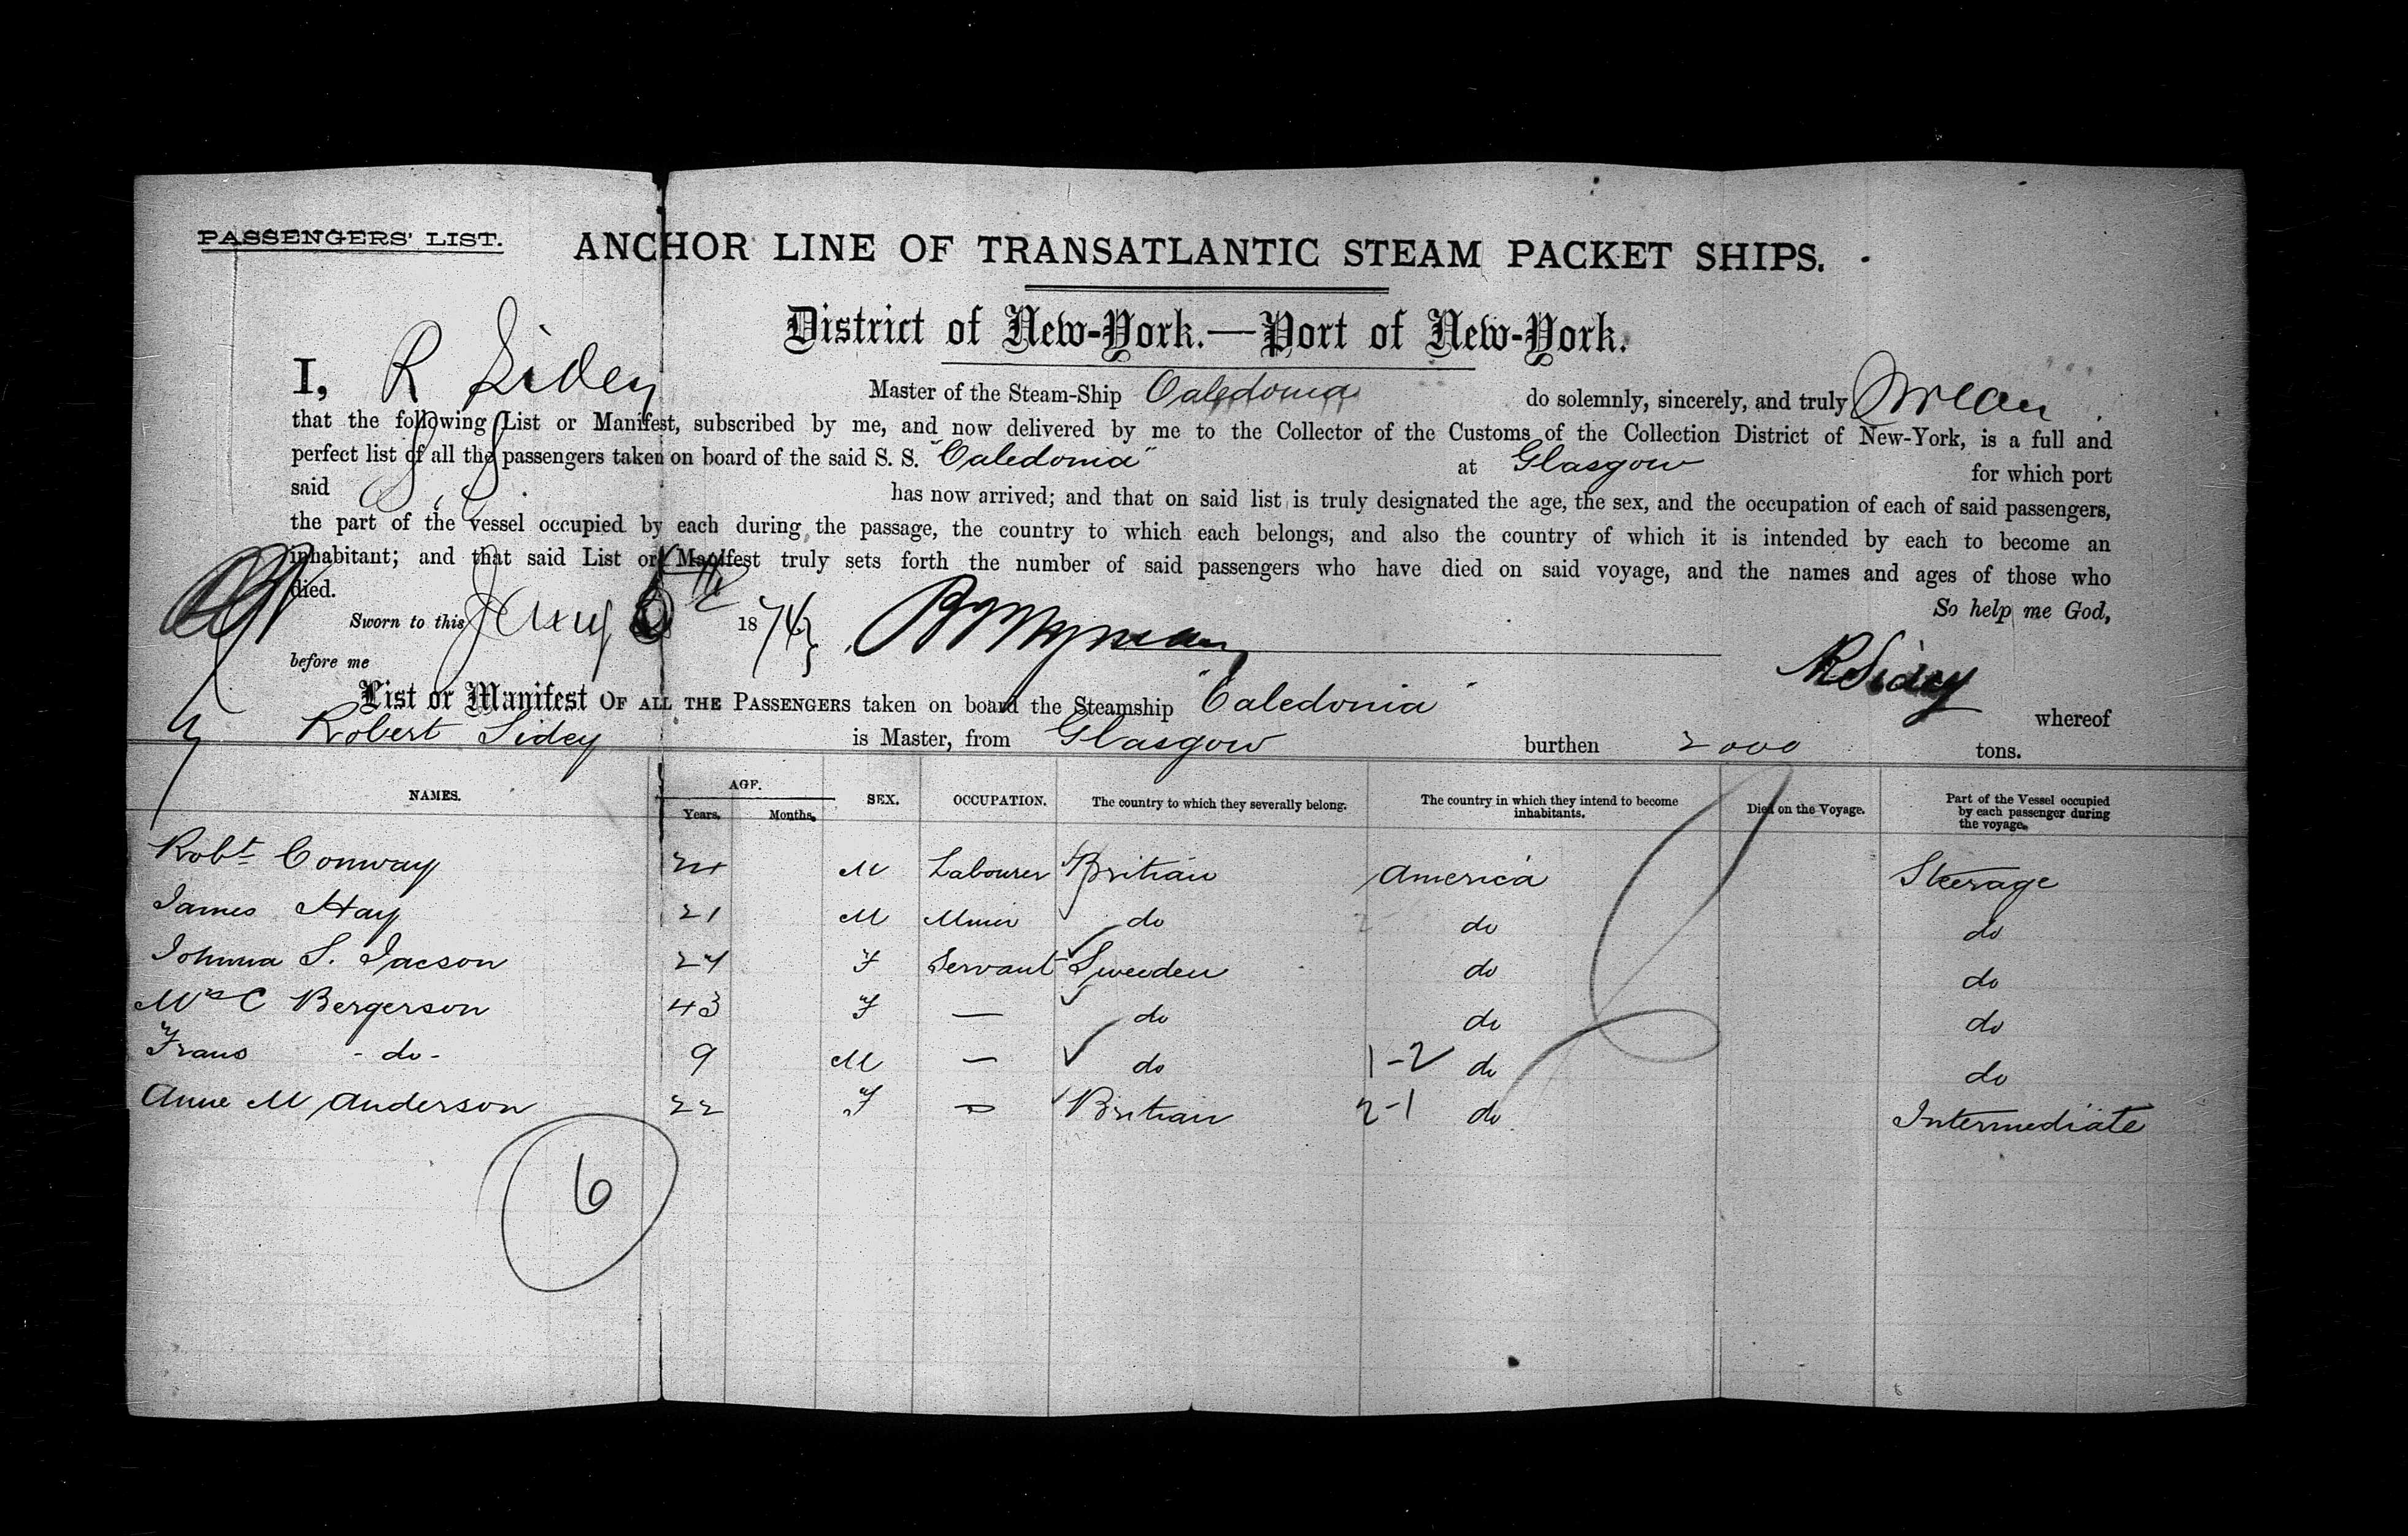 PASSENGERS' LIST.
ANCHOR LINE OF TRANSATLANTIC STEAM PACKET SHIPS.
District of New-York.—Port of New-York.
I, R Sidey Master of the Steam-Ship Caledonia do solemnly, sincerely, and truly swear
that the following List or Manifest, subscribed by me, and now delivered by me to the Collector of the Customs of the Collection District of New-York, is a full and
perfect list of all the passengers taken on board of the said S. S. "Caledonia" at Glasgow for which port
said has now arrived; and that on said list is truly designated the age, the sex, and the occupation of each of said passengers,
the part of the vessel occupied by each during the passage, the country to which each belongs, and also the country of which it is intended by each to become an
inhabitant; and that said List or Manifest truly sets forth the number of said passengers who have died on said voyage, and the names and ages of those who
died.
So help me God,
Sworn to this Jany 6th 1874
before me
R Sidey
List or Manifest OF ALL THE PASSENGERS taken on board the Steamship "Caledonia" whereof
Robert Sidey is Master, from Glasgow burthen 2000 tons.
NAMES. AGE. Years. Months. SEX. OCCUPATION. The country to which they severally belong. The country in which they intend to become inhabitants. Died on the Voyage. Part of the Vessel occupied by each passenger during the voyage.
Robt Conway 24 M Labourer Britian America Steerage
James Hay 21 M Miner do do do
Johnna S. Jacson 24 F Servant Sweeden do do
Mrs C Bergerson 43 F — do do do
Frans - do - 9 M — do 1-2 do do
Anne M Anderson 22 F — Britian 2-1 do Intermediate
6